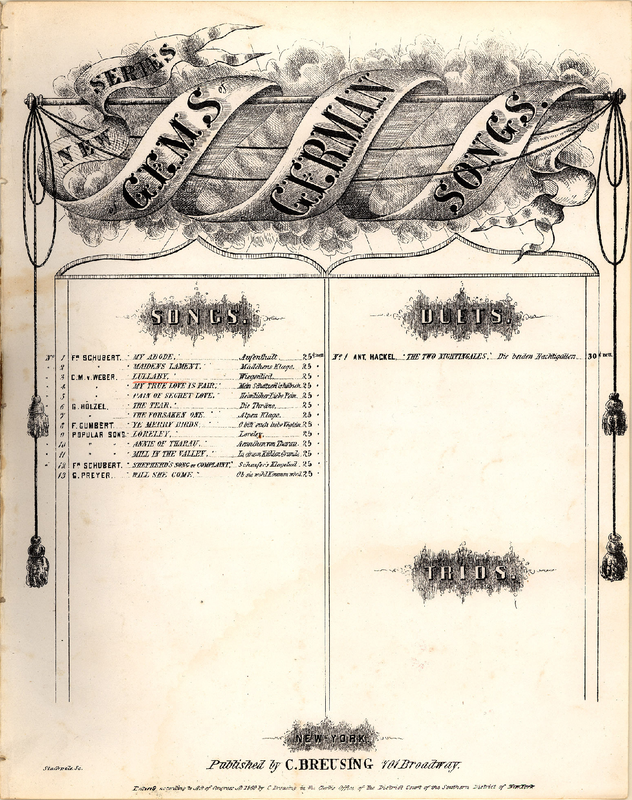 NEW SERIES
of GEMS of GERMAN SONGS.
SONGS.
No. 1 Fr. SCHUBERT. "MY ABODE," Aufenthalt 25 cents
2 " "MAIDENS LAMENT," Mädchens Klage. 25 "
3 C.M.v.WEBER. "LULLABY," Wiegenlied 25 "
4 " "MY TRUE LOVE IS FAIR," Mein Schatzerl is hübsch. 25 "
5 " "PAIN OF SECRET LOVE," Heimlicher Liebe Pein. 25 "
6 G. HÖLZEL. "THE TEAR," Die Thräne. 25 "
7 " "THE FORSAKEN ONE," Alpen Klage. 25 "
8 F. GUMBERT. "YE MERRY BIRDS," 25 "
9 POPULAR SONG. "LORELEY," Loreley. 25 "
10 " "ANNIE OF THARAU," Annchen von Tharau. 25 "
11 " "MILL IN THE VALLEY," In einem Kühlen Grunde. 25 "
12 Fr. SCHUBERT. "SHEPHERD'S SONG OF COMPLAINT," Schaefer's Klagelied. 25 "
13 G. PREYER. "WILL SHE COME," Ob sie wohl Kommen wird. 25 "
DUETS.
No. 1 ANT. HACKEL. "THE TWO NIGHTINGALES," Die beiden Nachtigallen. 30 cents
TRIOS.
NEW-YORK.
Published by C. BREUSING 701 Broadway.
Stackpole Sc.
Entered according to Act of Congress AD by C Breusing in the Clerks Office of the District Court of the Southern District of New York